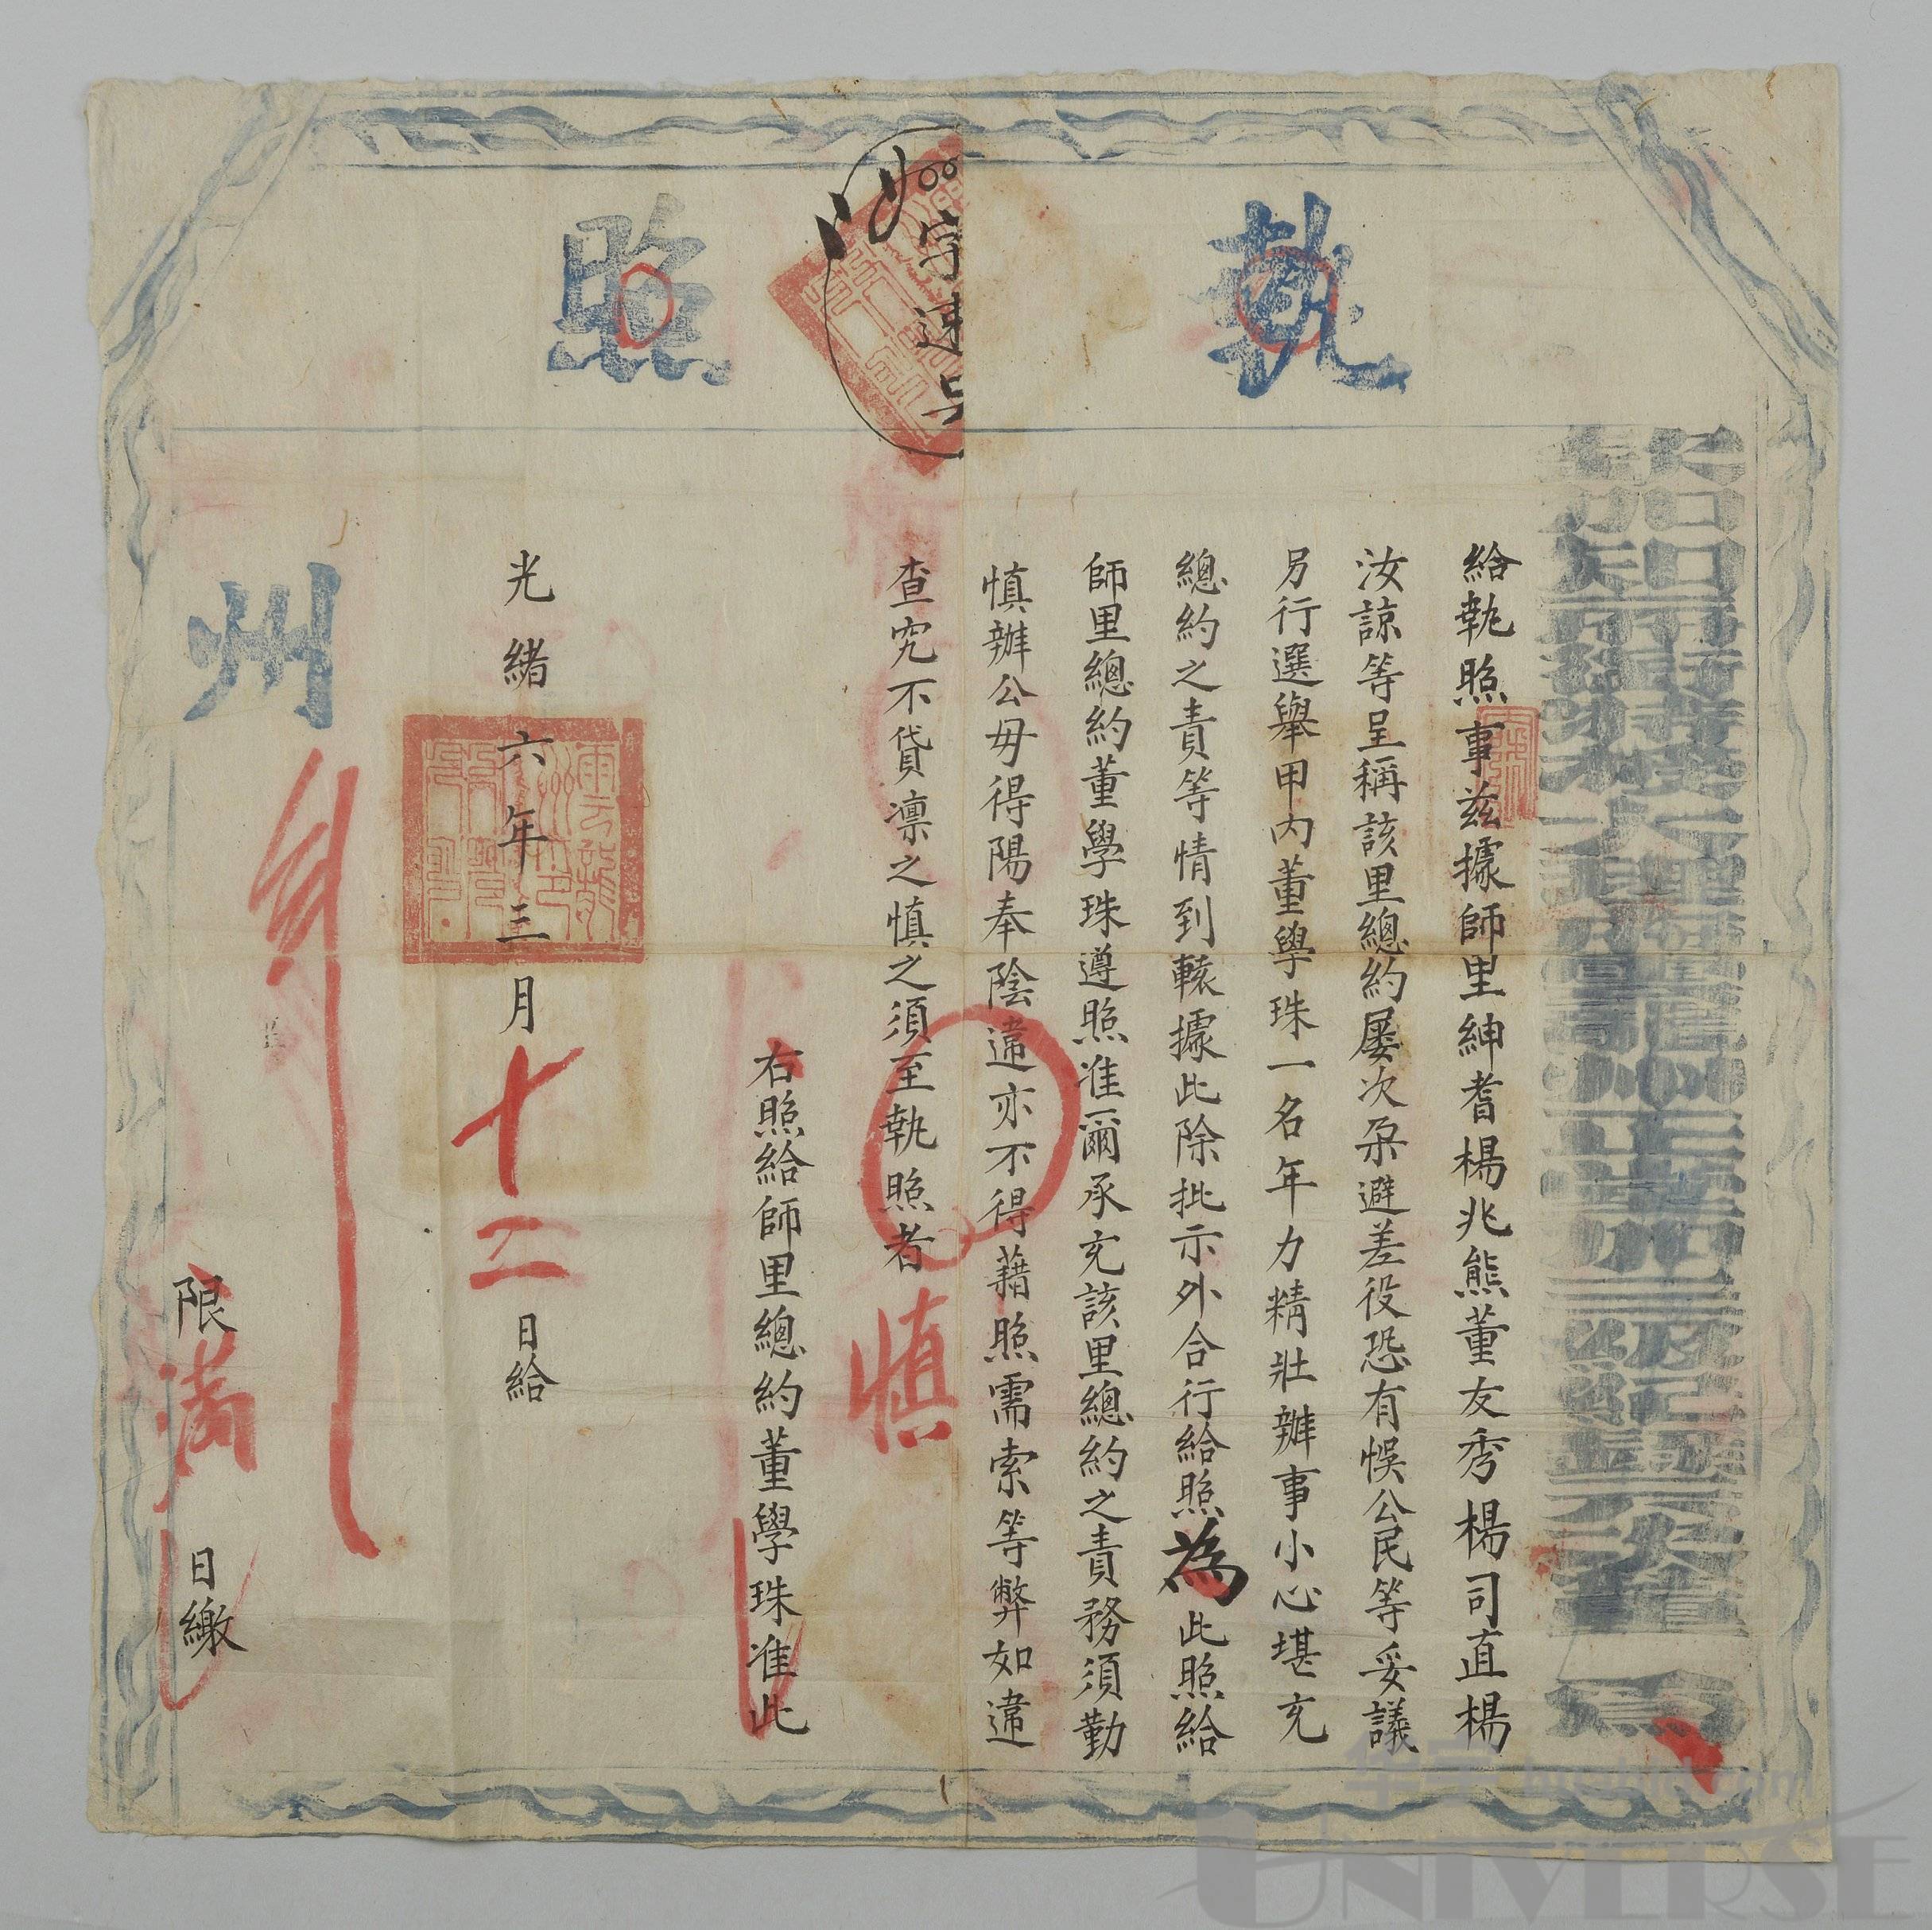 執照
字速号
給執照事兹據師里紳耆楊兆熊董友秀楊司直楊
汝諒等呈稱該里總約屢次朶避差役恐有悞公民等妥議
另行選舉甲内董學珠一名年力精壯辦事小心堪充
總約之責等情到轅據此除批示外合行給照為此照給
師里總約董學珠遵照准爾承充該里總約之責務須勤
慎辦公毋得陽奉陰違亦不得藉照需索等弊如違
查究不貸凛之慎之須至執照者
慎
右照給師里總約董學珠准此
光緒六年三月十二日給
州
限滿日繳
华宇 hosane.com
UNIVERSE